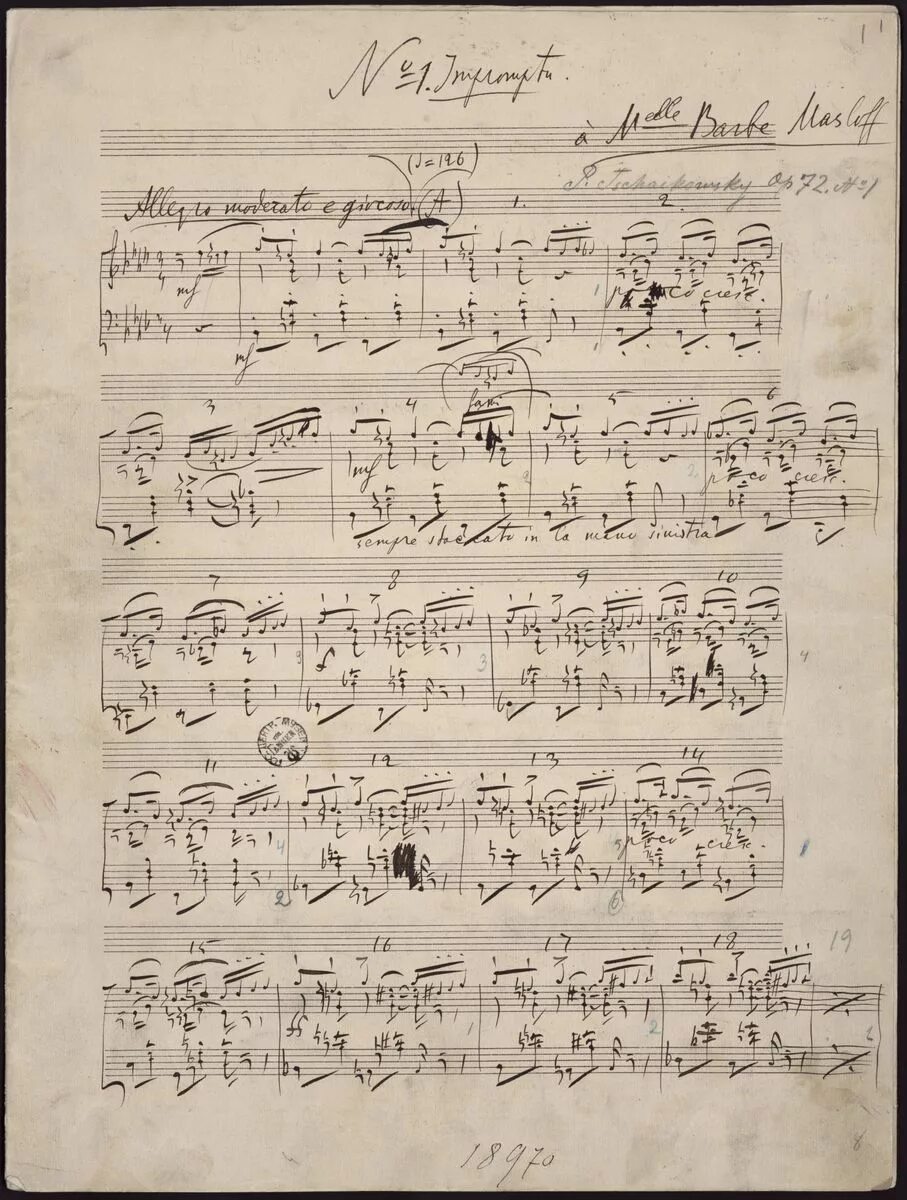 1
No 1. Impromptu.
à Melle Barbe Masloff
(♩=126)
P. Tschaikowsky Op 72. No 1
Allegro moderato e giocoso. (A) 1. 2.
mf
poco cresc.
mf
3 4 5 6
mf
poco cresc.
sempre staccato in la mano sinistra
7 8 9 10
3 3 4
11 12 13 14
poco cresc.
4 2 5 6 1
15 16 17 18 19
ff
1 2
18970
8